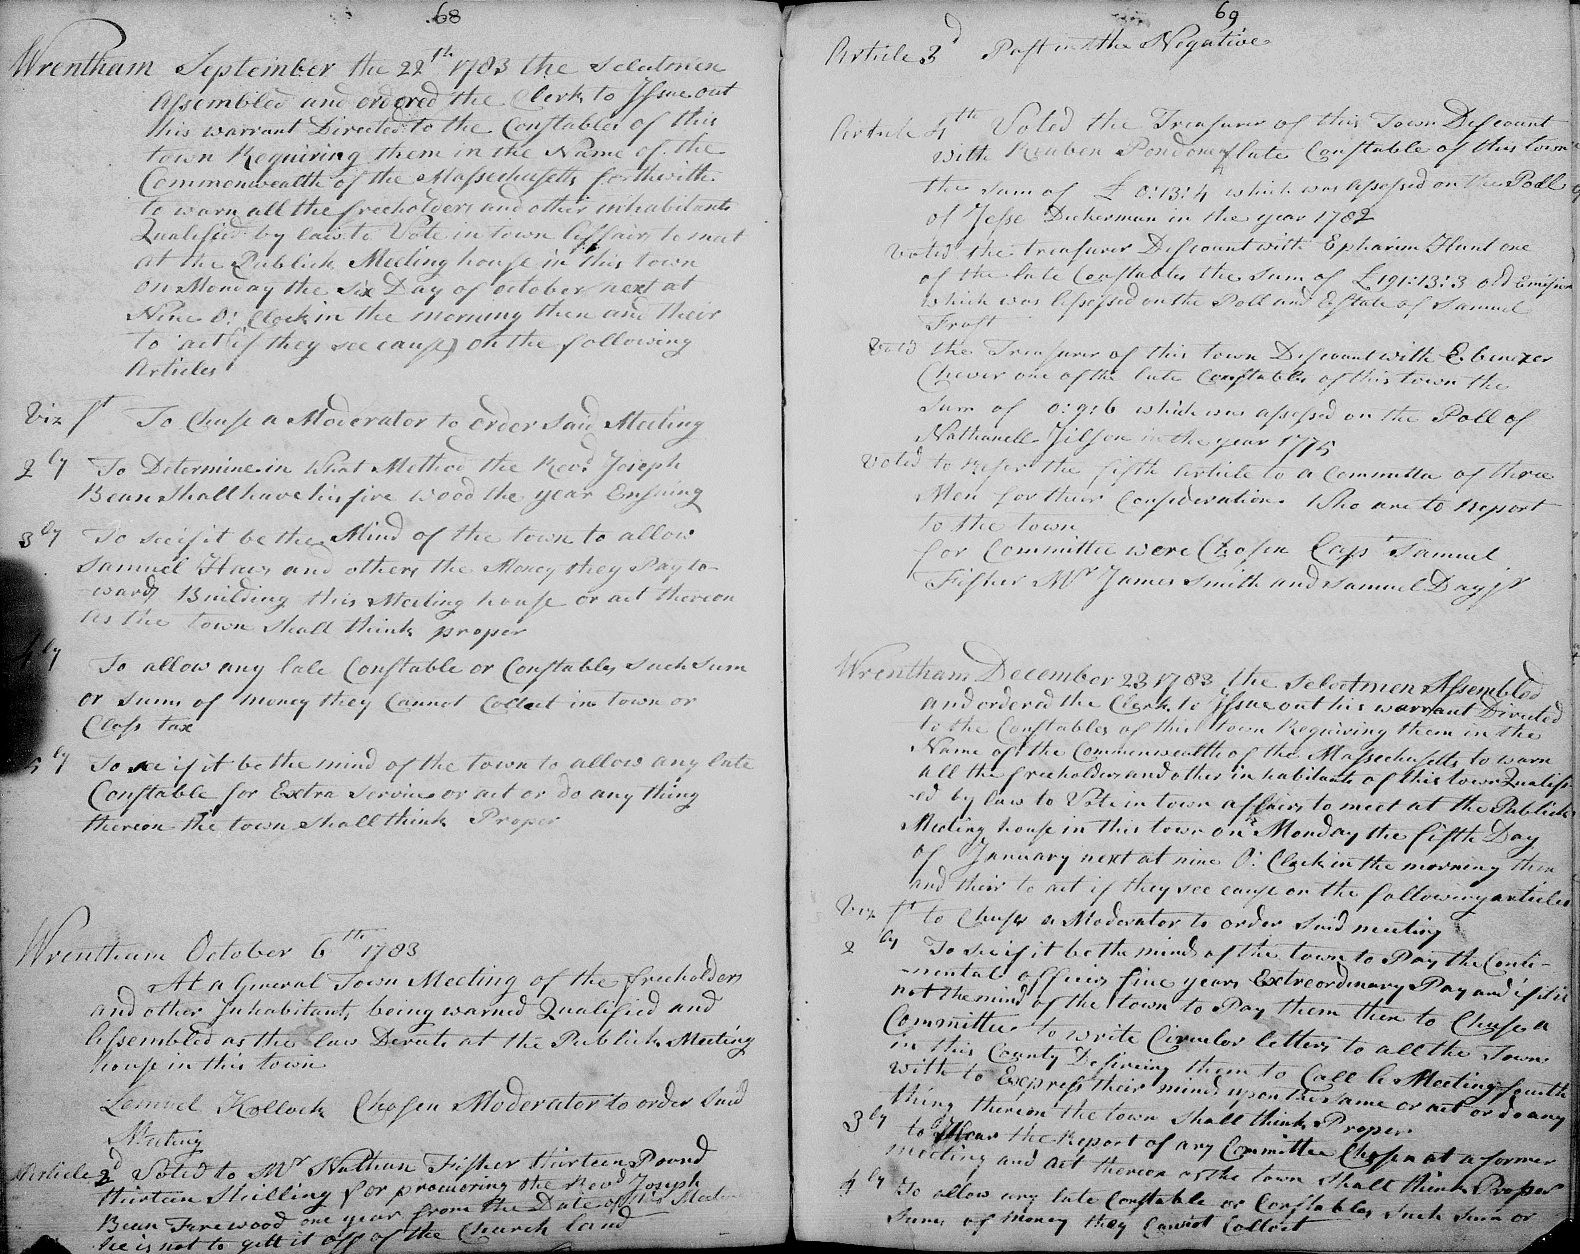 68
Wrentham September the 22th 1783 the Selectmen
Assembled and ordered the Clerk to Issue out
this warrant Directed to the Constables of this
town Requiring them in the Name of the
Commonwealth of the Massechusetts forthwith
to warn all the freeholders and other inhabitants
Qualified by law to Vote in town affairs to meet
at the Publick Meeting house in this town
on Monday the Six Day of october next at
Nine O: Clock in the morning then and their
to act (if they see cause) on the following
Articles
Viz 1st To Chuse a Moderator to order Said Meeting
2ly To Determine in What Method the Revd Joseph
Bean Shall have his fire wood the year Ensuing
3ly To see if it be the Mind of the town to allow
Samuel Haws and others the Money they Pay to-
wards Building this Meeting house or act thereon
As the town Shall think proper
4ly To allow any late Constable or Constables such Sum
or Sums of money they Cannot Collect in town or
Class tax
5ly To see if it be the mind of the town to allow any late
Constable for Extra Service or act or do any thing
thereon the town Shall think Proper
Wrentham October 6th 1783
At a General Town Meeting of the freeholders
and other Inhabitants being warned Qualified and
Assembled as the law Derects at the Publick Meeting
house in this town
Lemuel Kollock Chosen Moderator to order Said
Meeting
Article 2d Voted to Mr Nathan Fisher thirteen Pound
thirteen Shilling for procuring the Revd Joseph
Bean Firewood one year from the Date of this Meet-
he is not to gett it off of the Church land
69
Article 3d Past in the Negative
Article 4th Voted the Treasurer of this Town Discount
with Reuben Pond one of late Constable of this town
the sum of £ 0:13:4 which was Assessed on the Poll
of Jesse Dickerman in the year 1782
Voted the treasurer Discount with Epharim Hunt one
of the late Constables the Sum of £191:13:3 old Emision
which was Assessed on the Poll and Estate of Samuel
Frost
Votd the Treasurer of this town Discount with Ebenezer
Chever one of the late Constables of this town the
Sum of 0:9:6 which was assessed on the Poll of
Nathanell Jilson in the year 1775
Voted to Refer the fifth Article to a Committee of three
Men for their Consideration Who are to Report
to the town
for Committee were Chosen Capt Samuel
Fisher Mr James Smith and Samuel Day jr
Wrentham December 23 1783 the Selectmen Assembled
and ordered the Clerk to Issue out his warrant Directed
to the Constables of this town Requiring them in the
Name of the Commonwealth of the Massechusetts to warn
all the freeholders and other inhabitants of this town Qualifi-
-ed by law to Vote in town affairs to meet at the Publick
Meeting house in this town on Monday the fifth Day
of January next at nine O: Clock in the morning then
and their to act if they see cause on the following articles
Viz 1st to Chuse a Moderator to order Said meeting
2ly To see if it be the mind of the town to Pay the Conti-
-nentale officers five years Extreordinary Pay and if it is
not the mind of the town to Pay them then to Chuse a
Committee to write Circular letters to all the Towns
in this County Desireing them to Call A Meeting fourth
with to Express their minds upon the same or act or do any
thing thereon the town Shall think Proper
3ly to Hear the Report of any Committee Chosen at a former
meeting and act thereon as the town Shall think Proper
4ly To allow any late Constable or Constables Such Sum or
Sums of money they Cannot Collect